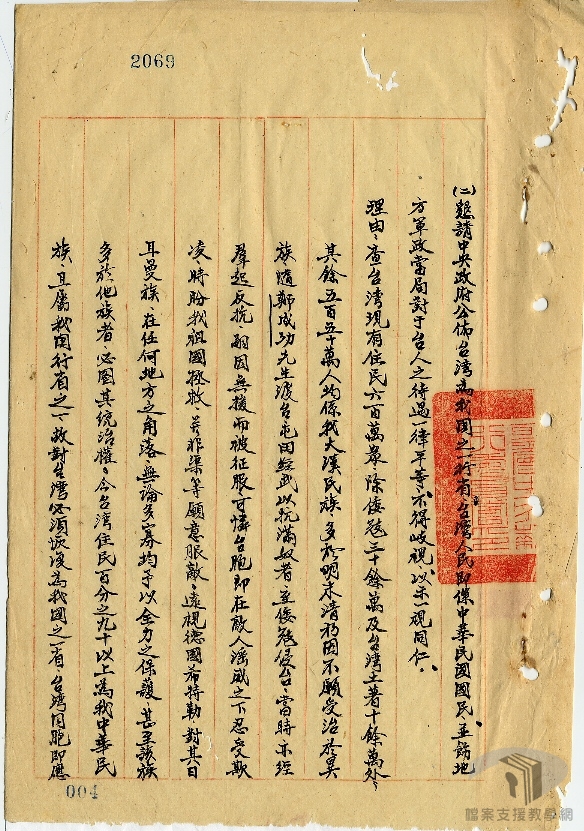 2069
(二)懇請中央政府公佈台湾為我國之一行省、台湾人民即係中華民國國民、並飭地
方軍政當局對于台人之待遇一律平等、不得歧視、以示一視同仁、
理由、查台湾現有住民六百萬衆、除倭寇三十餘萬及台湾土著十餘萬外、
其餘五百五十萬人均係我大漢民族、多於明末清初因不願受治於異
族、隨鄭成功先生渡台屯田經武以抗滿奴者、立倭寇侵台、當時亦經
羣起反抗、嗣因無援而被征服、可憐台胞即在敵人淫威之下忍受欺
凌、時盼我祖國拯救、並非渠等願意服敵、遠視德國希特勒對其日
耳曼族、在任何地方之角落、無論多寡均予以全力之保護、甚至該族
多於他族者、必圖其統治權、今台湾住民百分之九十以上為我中華民
族、且屬我國行省之一、故對台湾必須恢復為我國之一省、台湾同胞即應
004
檔案支援教學網